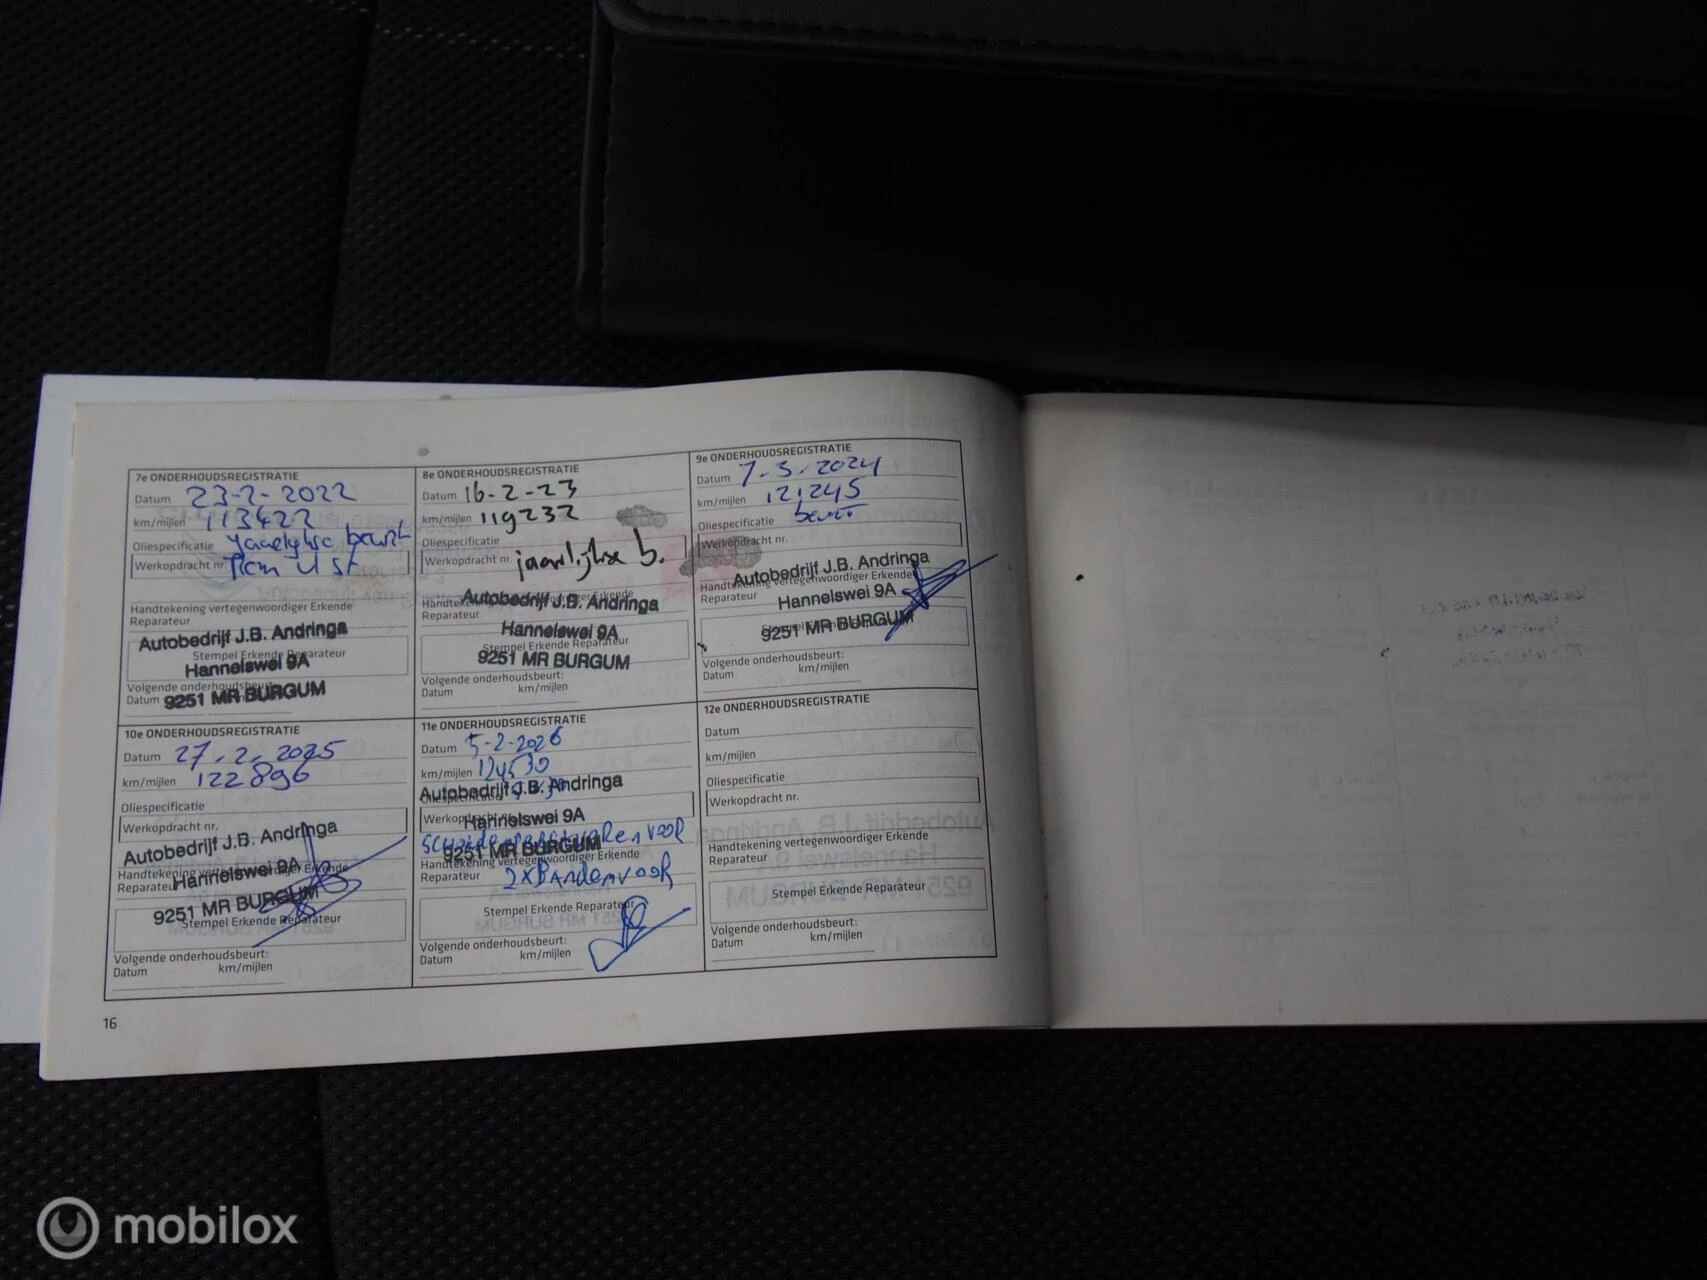 7e ONDERHOUDSREGISTRATIE
Datum 23-2-2022
km/mijlen 113422
Oliespecificatie
Werkopdracht nr.
Handtekening vertegenwoordiger Erkende
Reparateur
Autobedrijf J.B. Andringa
Stempel Erkende Reparateur
Hannelswei 9A
Volgende onderhoudsbeurt:
Datum km/mijlen
9251 MR BURGUM
8e ONDERHOUDSREGISTRATIE
Datum 16-2-23
km/mijlen 119232
Oliespecificatie
Werkopdracht nr. jaarlijkse b.
Handtekening vertegenwoordiger Erkende
Autobedrijf J.B. Andringa
Reparateur
Hannelswei 9A
Stempel Erkende Reparateur
9251 MR BURGUM
Volgende onderhoudsbeurt:
Datum km/mijlen
9e ONDERHOUDSREGISTRATIE
Datum 7-3-2024
km/mijlen 121245
Oliespecificatie beurt
Werkopdracht nr.
Autobedrijf J.B. Andringa
Handtekening vertegenwoordiger Erkende
Reparateur
Hannelswei 9A
Stempel Erkende Reparateur
9251 MR BURGUM
Volgende onderhoudsbeurt:
Datum km/mijlen
10e ONDERHOUDSREGISTRATIE
Datum 27-2-2025
km/mijlen 122896
Oliespecificatie
Werkopdracht nr.
Autobedrijf J.B. Andringa
Handtekening vertegenwoordiger Erkende
Reparateur
Hannelswei 9A
9251 MR BURGUM
Stempel Erkende Reparateur
Volgende onderhoudsbeurt:
Datum km/mijlen
11e ONDERHOUDSREGISTRATIE
Datum 5-2-2026
km/mijlen 124530
Oliespecificatie
Autobedrijf J.B. Andringa
Werkopdracht nr.
Hannelswei 9A
voor
9251 MR BURGUM
Handtekening vertegenwoordiger Erkende
Reparateur
2x Banden voor
Stempel Erkende Reparateur
Volgende onderhoudsbeurt:
Datum km/mijlen
12e ONDERHOUDSREGISTRATIE
Datum
km/mijlen
Oliespecificatie
Werkopdracht nr.
Handtekening vertegenwoordiger Erkende
Reparateur
Stempel Erkende Reparateur
Volgende onderhoudsbeurt:
Datum km/mijlen
16
mobilox